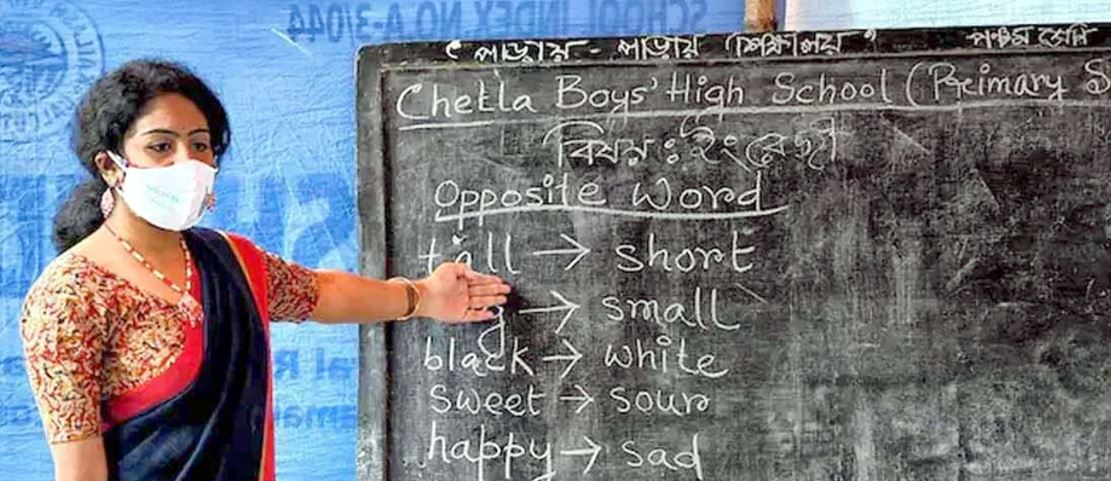 SCHOOL INDEX NO.A-3/044
“পাড়ায় - পাড়ায় শিক্ষালয়” পঞ্চম শ্রেণি
Chetla Boys' High School (Primary S
বিষয় : ইংরেজী
Opposite Word
tall → short
g → small
black → white
sweet → sour
happy → sad